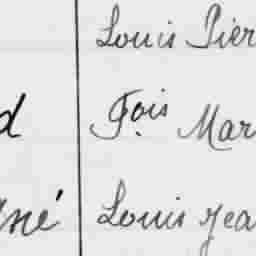 Louis Pier
d Fois Mar
né Louis Jea